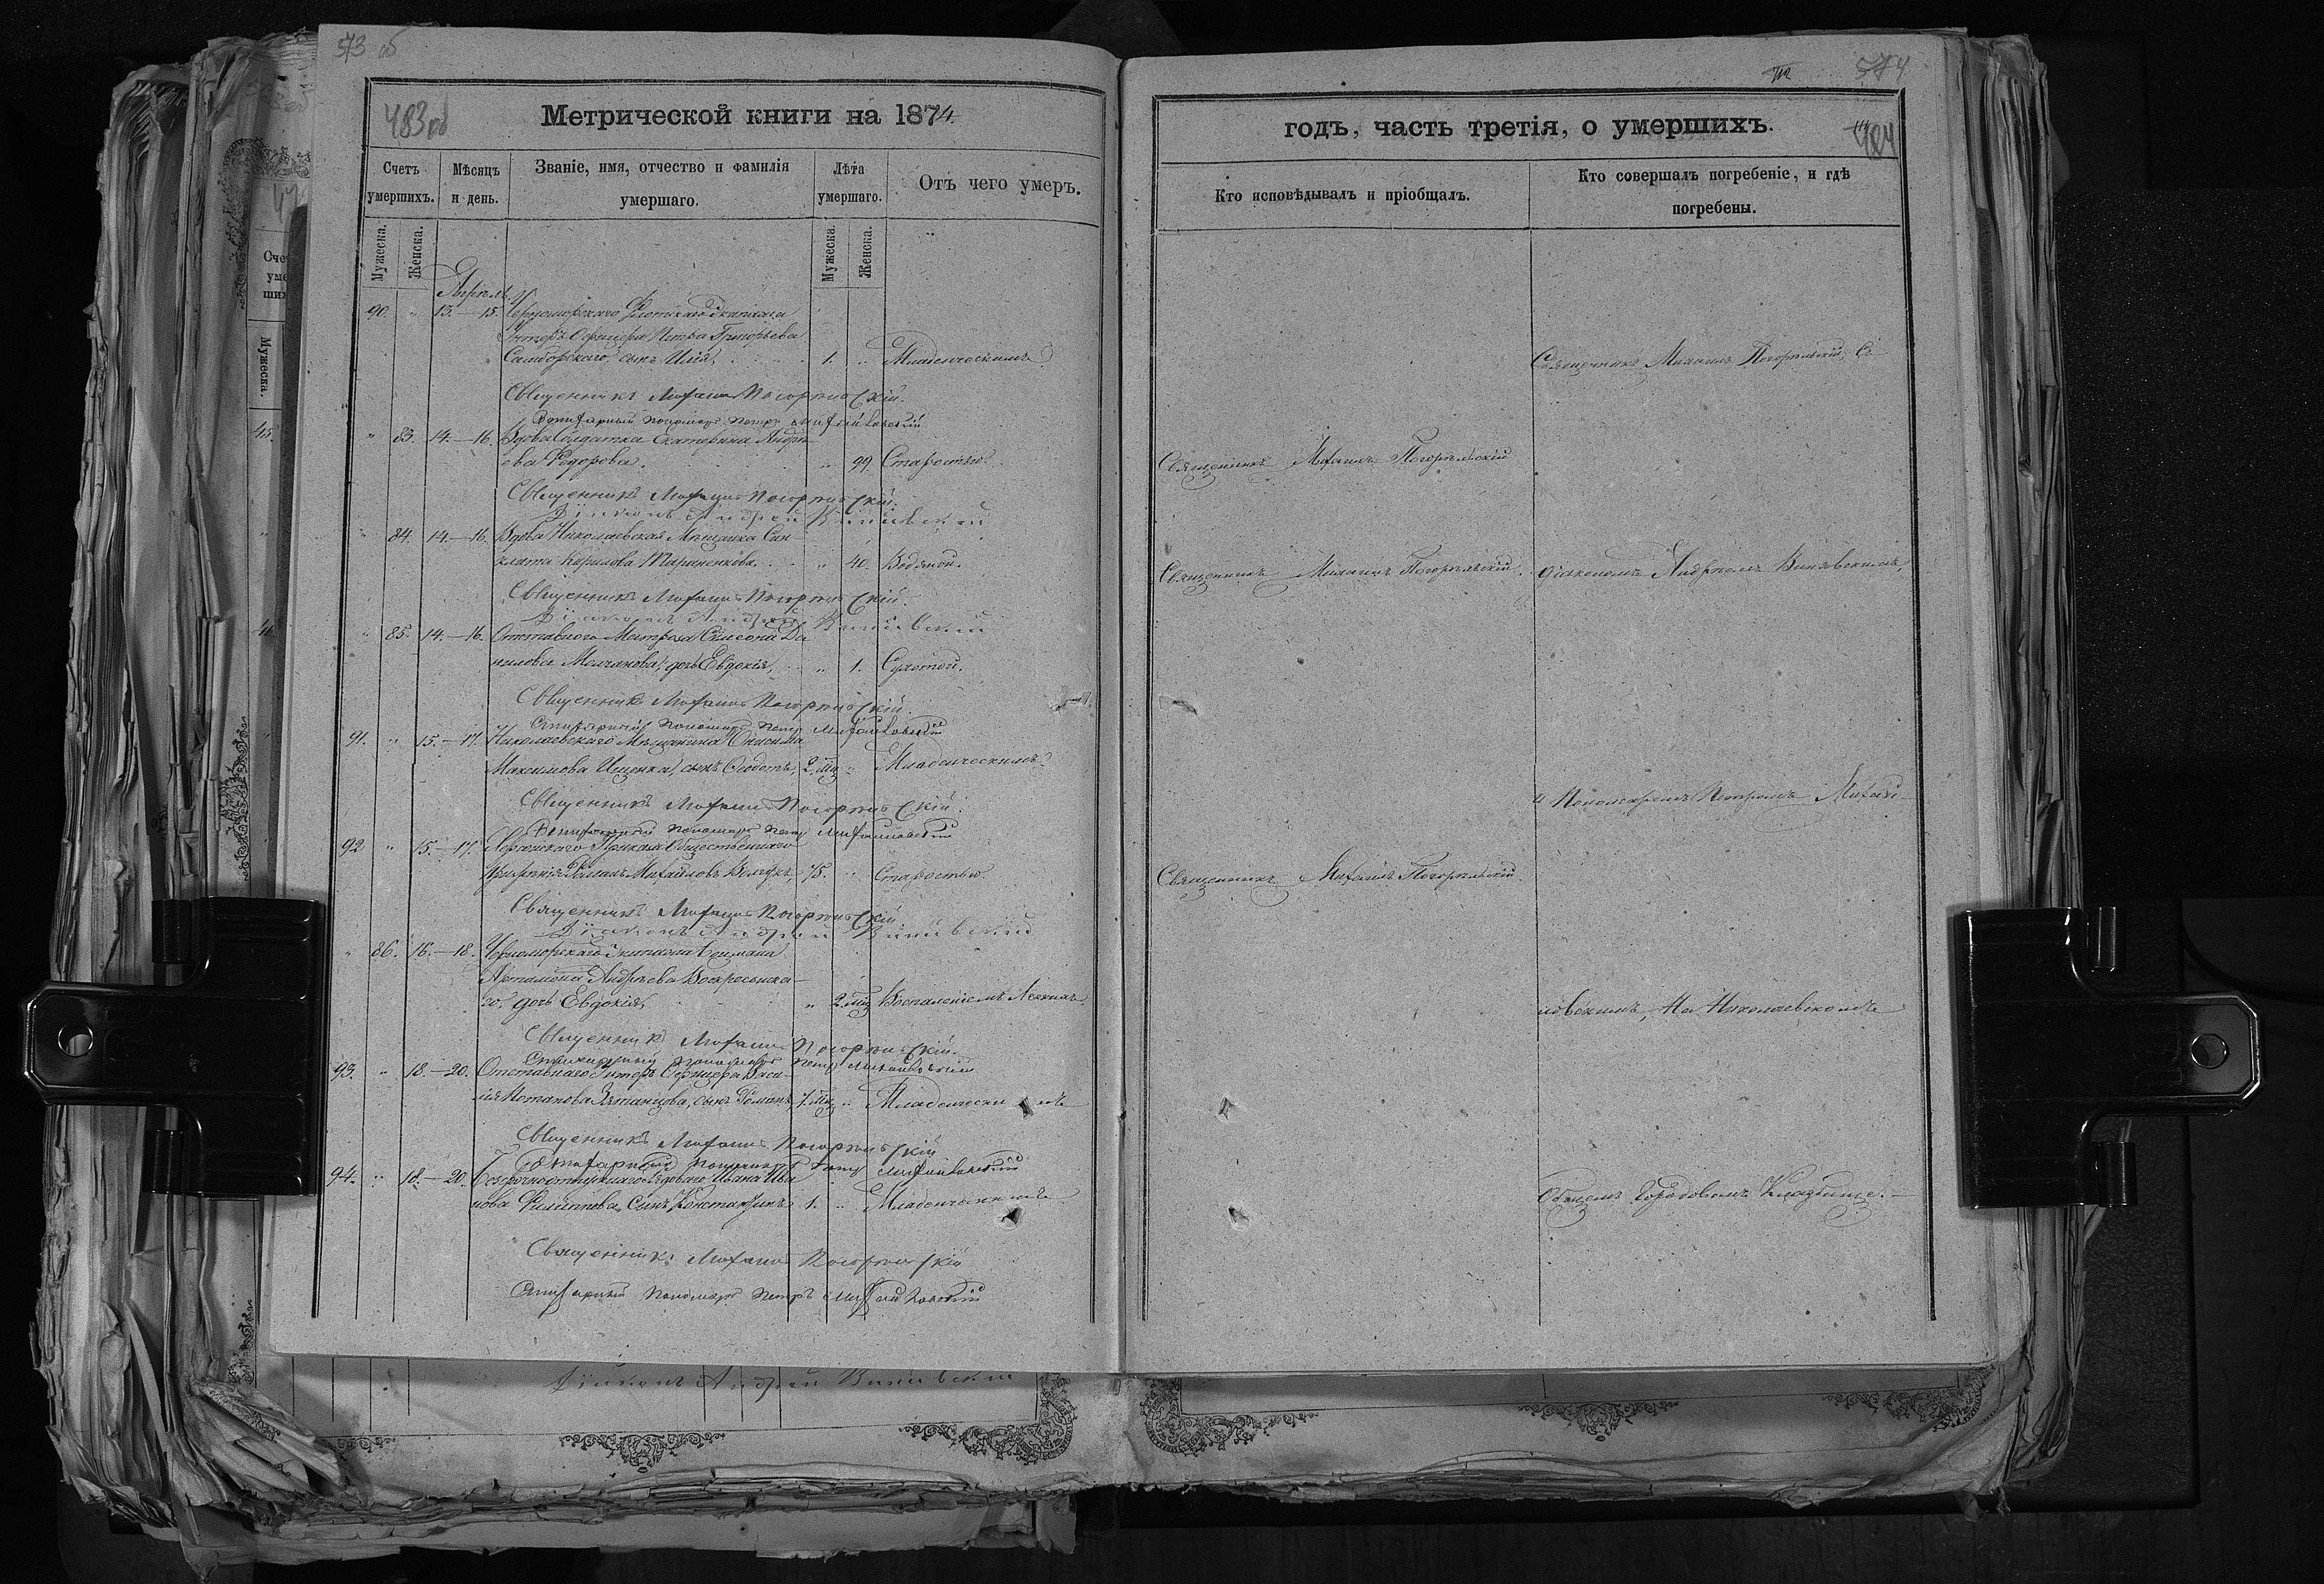 573 об
483 об
Метрической книги на 1874
Счетъ умершихъ.
Мѣсяцъ и день.
Званіе, имя, отчество и фамилія умершаго.
Лѣта умершаго.
Отъ чего умеръ.
Мужеска.
Женска.
Мужеска.
Женска.
Апрѣль
90. " 13.—15. Черноморскаго Флотскаго Экипажа
Унтеръ Офицера Петра Григорьева
Самборскаго, сынъ Илія, 1. " Младенческимъ
Священникъ Михаилъ Погорѣльскій.
Пономарь Петръ Михайловскій
" 83. 14.—16. Вдова Солдатка Екатерина Андре-
ева Федорова. " 99. Старостью.
Священникъ Михаилъ Погорѣльскій.
Діаконъ Андрей
" 84. 14.—16. Вдова Николаевская Мѣщанка Син-
клита Кирилова " 40. Водяной.
Священникъ Михаилъ Погорѣльскій.
Діаконъ Андрей
" 85. 14.—16. Отставнаго Матроса Симеона Да-
нилова Молчанова, дочь Евдокія, " 1. Сухотой.
Священникъ Михаилъ Погорѣльскій.
Пономарь Петръ Михайловскій
91. " 15.—17. Николаевскаго Мѣщанина
Максимова Ищенка, сынъ Ѳеодотъ, 2. мц " Младенческимъ
Священникъ Михаилъ Погорѣльскій.
Пономарь Петръ Михайловскій
92 " 15.—17. Херсонскаго Приказа Общественнаго
Призрѣнія Михайловъ 75. " Старостью
Священникъ Михаилъ Погорѣльскій
Діаконъ Андрей
" 86. 16.—18. Черноморскаго Экипажа Боцмана
Артамона Андреева Воскресенска-
го, дочь Евдокія, " 2. мц Воспаленіемъ Легкихъ.
Священникъ Михаилъ Погорѣльскій.
Пономарь Петръ Михайловскій
93. " 18.—20. Отставнаго Унтеръ Офицера Васи-
лія Потапова сынъ Романъ, 1. мц " Младенческимъ
Священникъ Михаилъ Погорѣльскій
Пономарь Петръ Михайловскій
94. " 18.—20. Безсрочноотпускнаго Рядоваго Ивана Ива-
нова Филиппова, Сынъ Константинъ 1. " Младенческимъ
Священникъ Михаилъ Погорѣльскій
Пономарь Петръ Михайловскій
574
484
годъ, часть третія, о умершихъ.
Кто исповѣдывалъ и пріобщалъ.
Кто совершалъ погребеніе, и гдѣ погребены.
Священникъ Михаилъ Погорѣльскій, Съ
Священникъ Михаилъ Погорѣльскій
Священникъ Михаилъ Погорѣльскій.
діакономъ Андреемъ
и Пономаремъ Петромъ Михай-
Священникъ Михаилъ Погорѣльскій.
ловскимъ, На Николаевскомъ
Общемъ Городовомъ Кладбищѣ.
Мужеска.
45.
Діаконъ Андрей